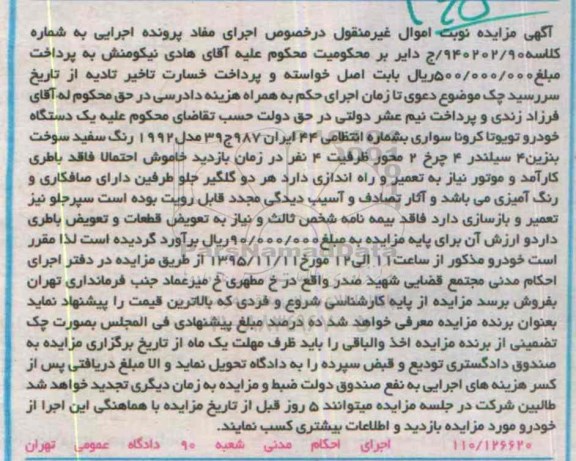 آگهی مزایده نوبت اموال غیرمنقول درخصوص اجرای مفاد پرونده اجرایی به شماره
کلاسه۹۴۰۲۰۲/۹۰/ج دایر بر محکومیت محکوم علیه آقای هادی نیکومنش به پرداخت
مبلغ۵۰۰/۰۰۰/۰۰۰ریال بابت اصل خواسته و پرداخت خسارت تاخیر تادیه از تاریخ
سررسید چک موضوع دعوی تا زمان اجرای حکم به همراه هزینه دادرسی در حق محکوم له آقای
فرزاد زندی و پرداخت نیم عشر دولتی در حق دولت حسب تقاضای محکوم علیه یک دستگاه
خودرو تویوتا کرونا سواری بشماره انتظامی ۴۴ ایران ۹۸۷ج۳۹ مدل ۱۹۹۲ رنگ سفید سوخت
بنزین۴ سیلندر ۴ چرخ ۲ محور ظرفیت ۴ نفر در زمان بازدید خاموش احتمالا فاقد باطری
کارآمد و موتور نیاز به تعمیر و راه اندازی دارد هر دو گلگیر جلو طرفین دارای صافکاری و
رنگ آمیزی می باشد و آثار تصادف و آسیب دیدگی مجدد قابل رویت بوده است سپرجلو نیز
تعمیر و بازسازی دارد فاقد بیمه نامه شخص ثالث و نیاز به تعویض قطعات و تعویض باطری
داردو ارزش آن برای پایه مزایده به مبلغ۹۰/۰۰۰/۰۰۰ریال برآورد گردیده است لذا مقرر
است خودرو مذکور از ساعت۱۱ الی۱۲ مورخ۱۳۹۵/۱۱/۱۱ از طریق مزایده در دفتر اجرای
احکام مدنی مجتمع قضایی شهید صدر واقع در خ مطهری خ میرعماد جنب فرمانداری تهران
بفروش برسد مزایده از پایه کارشناسی شروع و فردی که بالاترین قیمت را پیشنهاد نماید
بعنوان برنده مزایده معرفی خواهد شد ده درصد مبلغ پیشنهادی فی المجلس بصورت چک
تضمینی از برنده مزایده اخذ والباقی را باید ظرف مهلت یک ماه از تاریخ برگزاری مزایده به
صندوق دادگستری تودیع و قبض سپرده را به دادگاه تحویل نماید و الا مبلغ دریافتی پس از
کسر هزینه های اجرایی به نفع صندوق دولت ضبط و مزایده به زمان دیگری تجدید خواهد شد
طالبین شرکت در جلسه مزایده میتوانند ۵ روز قبل از تاریخ مزایده با هماهنگی این اجرا از
خودرو مورد مزایده بازدید و اطلاعات بیشتری کسب نمایند.
۱۱۰/۱۲۶۶۲۰ اجرای احکام مدنی شعبه ۹۰ دادگاه عمومی تهران